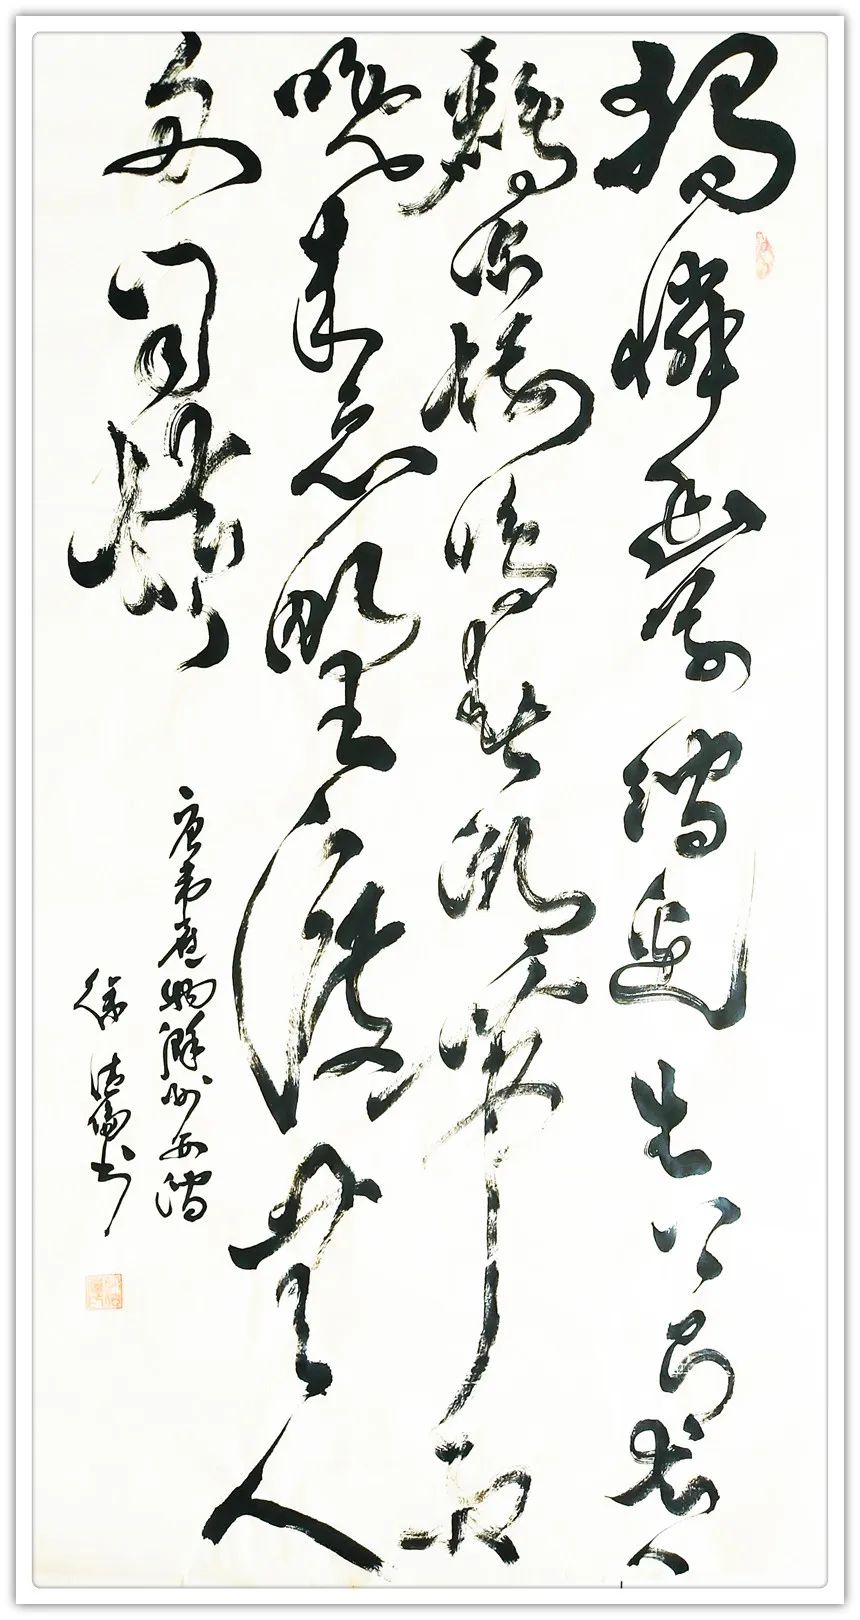 独憐幽草澗边生上有黄
鸝深树鸣春潮带雨
晚来急野渡無人
舟自横
唐韦应物滁州西澗
徐书